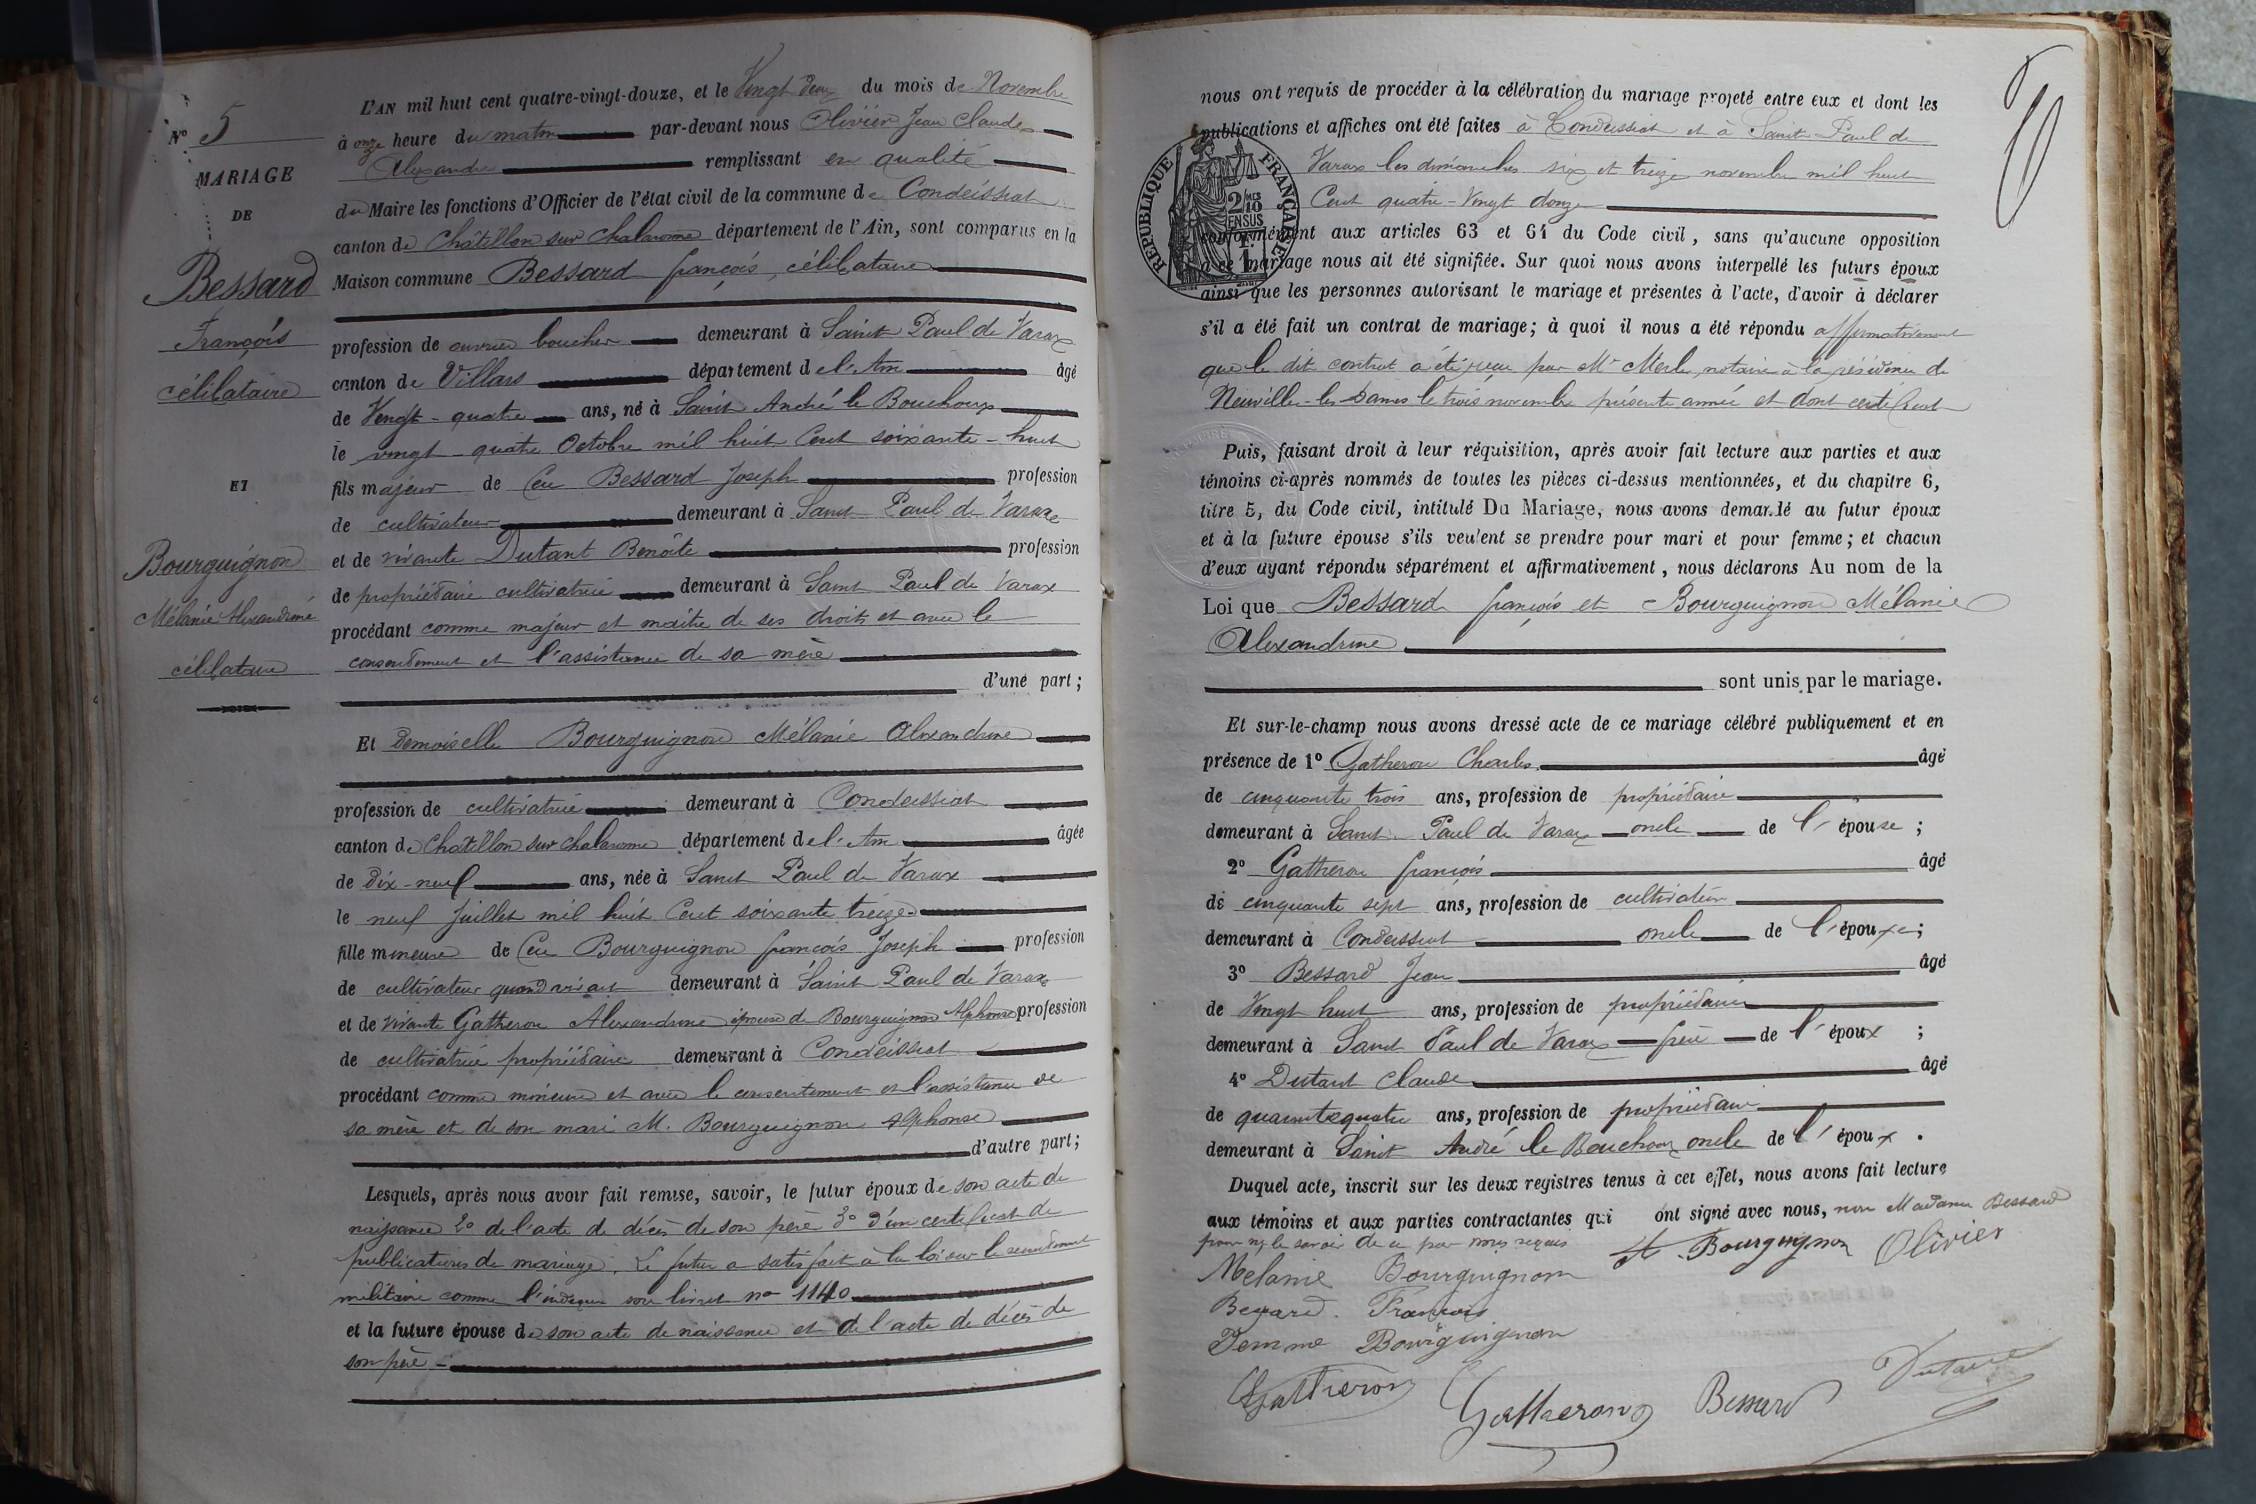 N° 5
MARIAGE
DE
Bessard
François
célibataire
ET
Bourguignon
Mélanie Alexandrine
célibataire
L'AN mil huit cent quatre-vingt-douze, et le Vingt deux du mois de Novembre
à onze heure du matin par-devant nous Olivier Jean Claude
Alexandre remplissant en qualité
du Maire les fonctions d'Officier de l'état civil de la commune de Condeissiat
canton de Châtillon sur Chalaronne département de l'Ain, sont comparus en la
Maison commune Bessard françois, célibataire
profession de ouvrier boucher demeurant à Saint Paul de Varax
canton de Villars département de l'Ain âgé
de Vingt-quatre ans, né à Saint André le Bouchoux
le vingt-quatre Octobre mil huit Cent soixante-huit
fils majeur de feu Bessard Joseph profession
de cultivateur demeurant à Saint Paul de Varax
et de vivante Dutant Benoîte profession
de propriétaire cultivatrice demeurant à Saint Paul de Varax
procédant comme majeur et maître de ses droits et avec le
consentement et l'assistance de sa mère
d'une part;
Et demoiselle Bourguignon Mélanie Alexandrine
profession de cultivatrice demeurant à Condeissiat
canton de Châtillon sur Chalaronne département de l'Ain âgée
de dix-neuf ans, née à Saint Paul de Varax
le neuf Juillet mil huit Cent soixante treize
fille mineure de feu Bourguignon françois Joseph profession
de cultivateur quand vivait demeurant à Saint Paul de Varax
et de vivante Gatheron Alexandrine épouse de Bourguignon Alphonse profession
de cultivatrice propriétaire demeurant à Condeissiat
procédant comme mineure et avec le consentement et l'assistance de
sa mère et de son mari M. Bourguignon Alphonse
d'autre part;
Lesquels, après nous avoir fait remise, savoir, le futur époux de son acte de
naissance 2° de l'acte de décès de son père 3° d'un certificat de
publications de mariage. Le futur a satisfait à la loi sur le recrutement
militaire comme l'indique son livret no 1140
et la future épouse de son acte de naissance et de l'acte de décès de
son père
nous ont requis de procéder à la célébration du mariage projeté entre eux et dont les
publications et affiches ont été faites à Condeissiat et à Saint Paul de
Varax les dimanches six et treize novembre mil huit
Cent quatre-Vingt douze
conformément aux articles 63 et 64 du Code civil, sans qu'aucune opposition
à ce mariage nous ait été signifiée. Sur quoi nous avons interpellé les futurs époux
ainsi que les personnes autorisant le mariage et présentes à l'acte, d'avoir à déclarer
s'il a été fait un contrat de mariage; à quoi il nous a été répondu affirmativement
que le dit contrat a été reçu par Mr Merle, notaire à la résidence de
Neuville-les-Dames le trois novembre présente année et dont certificat
RÉPUBLIQUE FRANÇAISE
Puis, faisant droit à leur réquisition, après avoir fait lecture aux parties et aux
témoins ci-après nommés de toutes les pièces ci-dessus mentionnées, et du chapitre 6,
titre 5, du Code civil, intitulé Du Mariage, nous avons demandé au futur époux
et à la future épouse s'ils veulent se prendre pour mari et pour femme; et chacun
d'eux ayant répondu séparément et affirmativement, nous déclarons Au nom de la
Loi que Bessard françois et Bourguignon Mélanie
Alexandrine
sont unis par le mariage.
Et sur-le-champ nous avons dressé acte de ce mariage célébré publiquement et en
présence de 1° Gatheron Charles âgé
de cinquante trois ans, profession de propriétaire
demeurant à Saint Paul de Varax oncle de l'épouse;
2° Gatheron françois âgé
de cinquante sept ans, profession de cultivateur
demeurant à Condeissiat oncle de l'épouxe;
3° Bessard Jean âgé
de Vingt huit ans, profession de propriétaire
demeurant à Saint Paul de Varax frère de l'époux;
4° Dutant Claude âgé
de quarante quatre ans, profession de propriétaire
demeurant à Saint André le Bouchoux oncle de l'époux.
Duquel acte, inscrit sur les deux registres tenus à cet effet, nous avons fait lecture
aux témoins et aux parties contractantes qui ont signé avec nous, non Madame Bessard
pour ne le savoir de ce par nous requis
A. Bourguignon Olivier
Melanie Bourguignon
Bessard François
Femme Bourguignon
Gatheron Gatheron Bessard Dutant